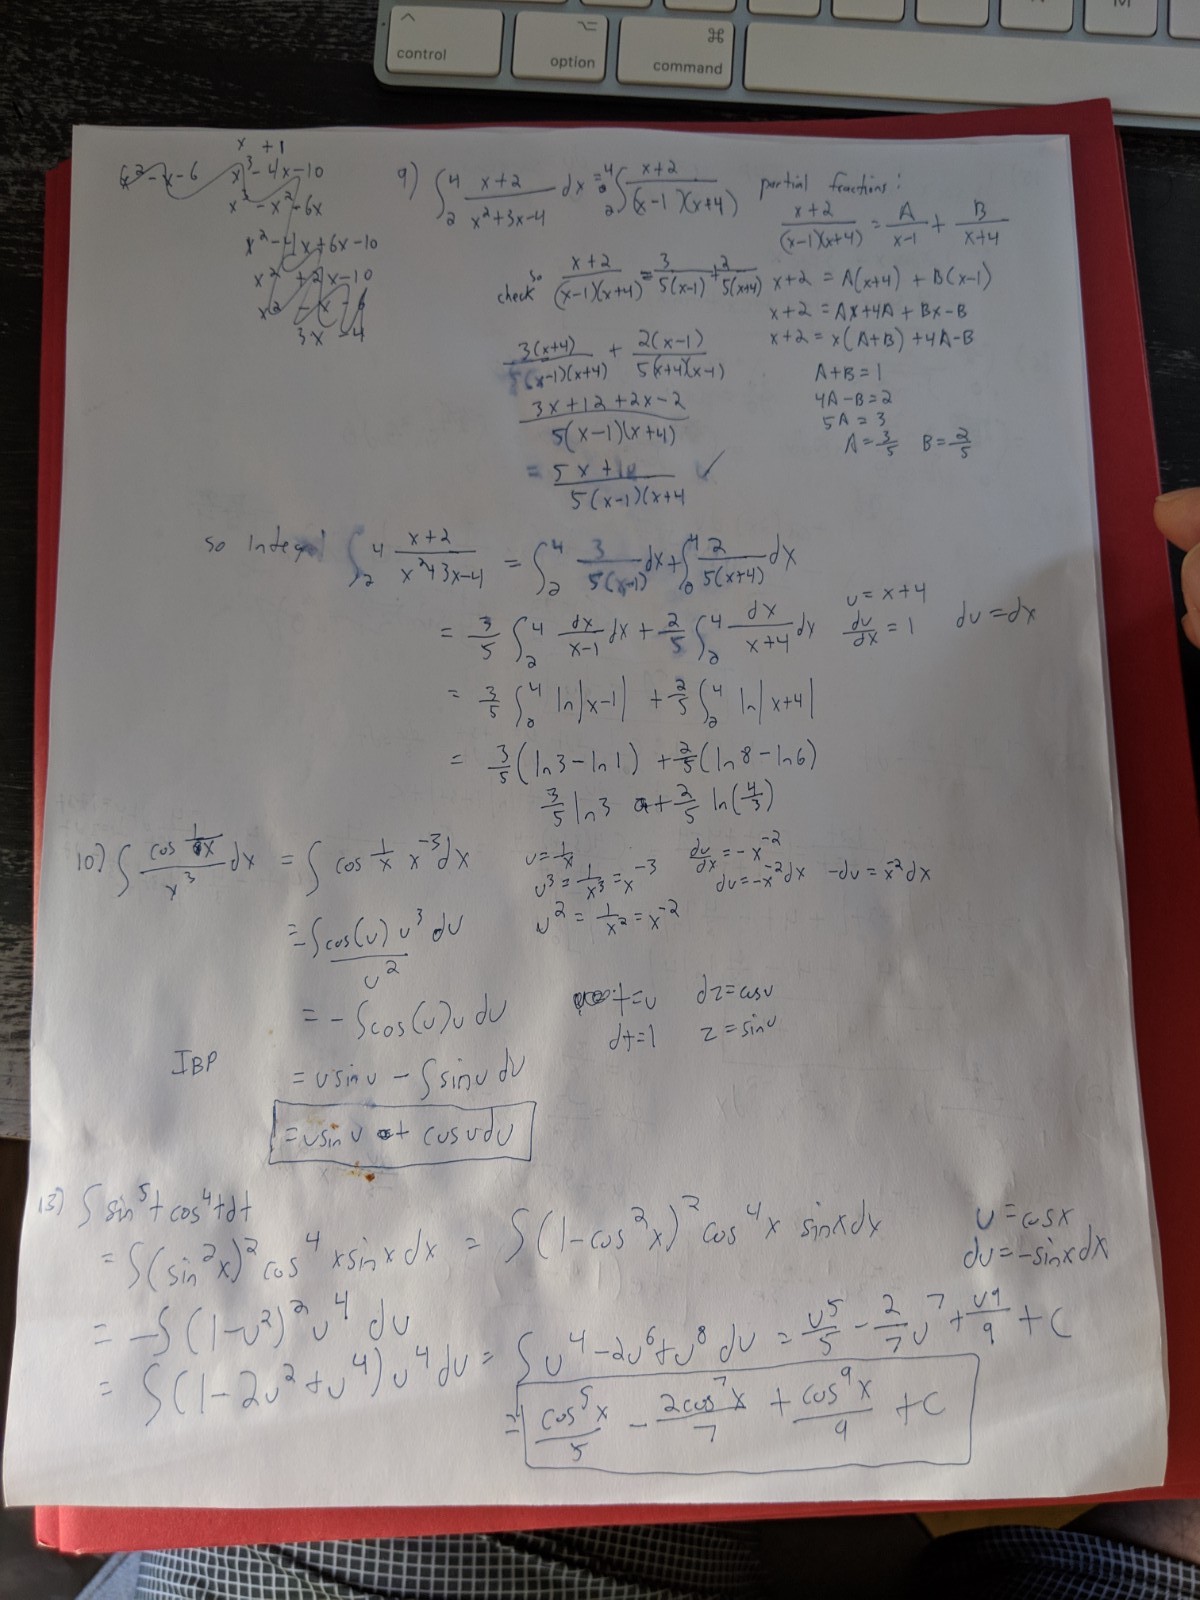 ^
control
⌥
option
⌘
command
M
x +1
x²-x-6 x³-4x-10
x³-x²-6x
x²-4x+6x-10
x²+2x-10
x²-x-6
3x-4
9) ∫₂⁴ x+2/x²+3x-4 dx = ∫₂⁴ x+2/(x-1)(x+4) partial fractions:
x+2/(x-1)(x+4) = A/x-1 + B/x+4
x+2 = A(x+4) + B(x-1)
x+2 = Ax+4A + Bx-B
x+2 = x(A+B) +4A-B
A+B=1
4A-B=2
5A=3
A=3/5 B=2/5
so x+2/(x-1)(x+4) = 3/5(x-1) + 2/5(x+4)
check
3(x+4)/5(x-1)(x+4) + 2(x-1)/5(x+4)(x-1)
3x+12+2x-2/5(x-1)(x+4)
= 5x+10/5(x-1)(x+4 ✓
so Integral ∫₂⁴ x+2/x²+3x-4 = ∫₂⁴ 3/5(x-1) dx + ∫₂⁴ 2/5(x+4) dx
= 3/5 ∫₂⁴ dx/x-1 dx + 2/5 ∫₂⁴ dx/x+4 dx u=x+4 du/dx=1 du=dx
= 3/5 ∫₂⁴ ln|x-1| + 2/5 ∫₂⁴ ln|x+4|
= 3/5(ln3-ln1) + 2/5(ln8-ln6)
3/5 ln3 + 2/5 ln(4/3)
10) ∫ cos 1/x / x³ dx = ∫ cos 1/x x⁻³dx u=1/x du/dx=-x⁻²
u³=1/x³=x⁻³ du=-x⁻²dx -du=x⁻²dx
u²=1/x²=x⁻²
=-∫ cos(u) u³/u² du
= -∫cos(u)u du t=u dz=cosu
dt=1 z=sinu
IBP
=usinu - ∫sinu du
=usinu + cosudu
13) ∫sin⁵t cos⁴tdt
= ∫(sin²x)² cos⁴ xsinx dx = ∫(1-cos²x)² cos⁴x sinxdx u=cosx
du=-sinxdx
= -∫(1-u²)²u⁴ du
= ∫(1-2u²+u⁴)u⁴du = ∫u⁴-2u⁶+u⁸ du = u⁵/5 - 2/7 u⁷ + u9/9 + C
= cos⁵x/5 - 2cos⁷x/7 + cos⁹x/9 + C